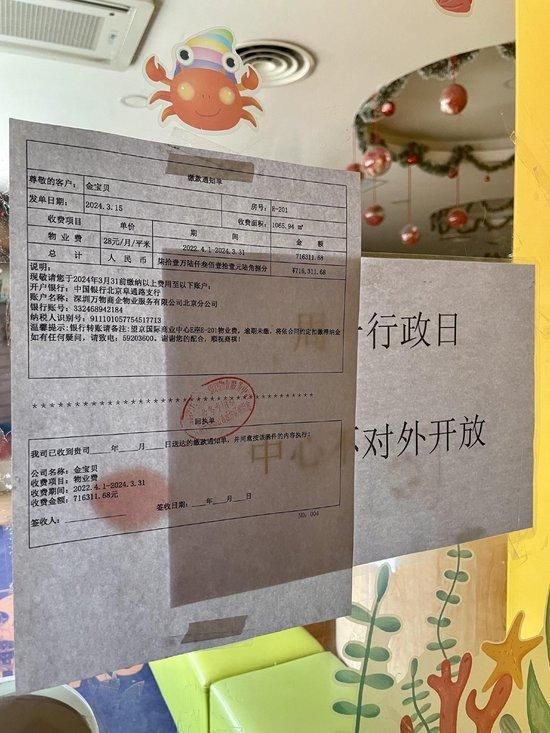 缴款通知单
尊敬的客户： 金宝贝
发单日期： 2024.3.15 房号： E-201
收费项目 单价 期 间 收费面积： 1065.94 ㎡
金 额
物业费 28元/月/平米 2022.4.1-2024.3.31 716311.68
总 计 人 民 币 柒拾壹万陆仟叁佰壹拾壹元陆角捌分 ¥716,311.68
说明：
现敬请您于2024年3月31前缴纳以上费用至以下账户：
开户银行：中国银行北京阜通路支行
账户名称：深圳万物商企物业服务有限公司北京分公司
银行账号：332468942184
纳税人识别号：911101057754517713
温馨提示：银行转账请备注：望京国际商业中心E座E-201物业费，逾期未缴，将依合同约定扣缴滞纳金
如有任何疑问，请致电：59203600。谢谢您的配合，顺祝商祺！
回执单
我司已收到贵司____年____月____日送达的缴款通知单，并同意按该函件的内容执行！
公司名称：金宝贝
收费项目：物业费
收费期间：2022.4.1-2024.3.31
收费金额：716311.68元
签收人：____________ 签收日期：____年____月____日
NO. 004
周一行政日
中心不对外开放